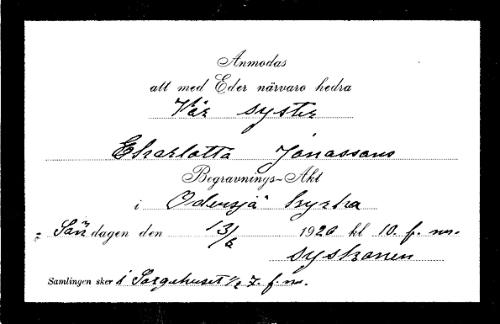 Anmodas
att med Eder närvaro hedra
Vår syster
Charlotta Jonassons
Begravnings-Akt
i Odensjö kyrka
Sön dagen den 13/6 1920 kl 10. f. m.
syskonen
Samlingen sker i Sorgehuset 1/2 7. f. m.